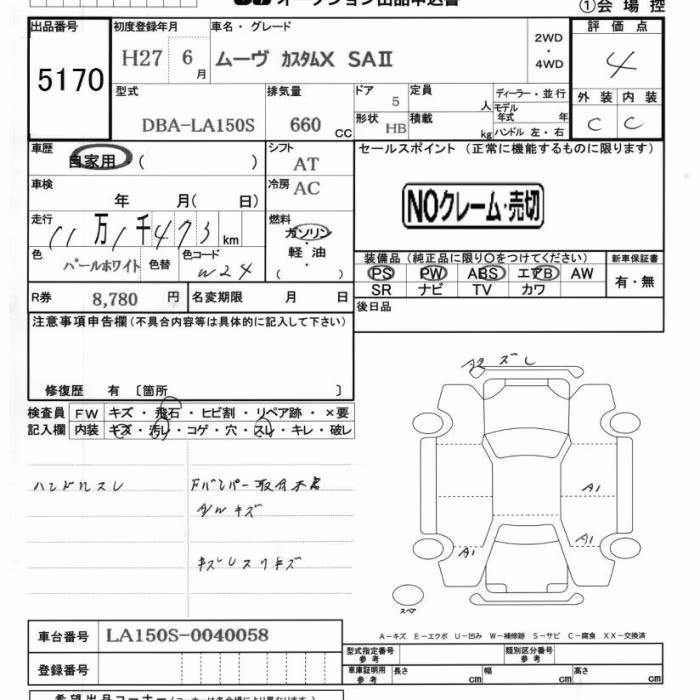 オークション出品申込書
①会場控
出品番号
5170
初度登録年月
H27 6月
車名・グレード
ムーヴ カスタムX SAⅡ
2WD
・
4WD
評価点
4
型式
DBA-LA150S
排気量
660 CC
ドア
5
定員
人
ディーラー・並行
外装 内装
C C
形状
HB
積載
kg
モデル年式 年
ハンドル 左・右
車歴
自家用 ( )
シフト
AT
セールスポイント (正常に機能するものに限ります)
車検
年 月( 日)
冷房
AC
NOクレーム・売切
走行
11万1千473km
燃料
ガソリン
・
軽油
( )
色
パールホワイト
色替
色コード
W24
装備品 (純正品に限り○をつけてください)
新車保証書
PS PW ABS エアB AW
SR ナビ TV カワ
有・無
R券 8,780 円
名変期限 月 日
後日品
注意事項申告欄(不具合内容等は具体的に記入して下さい)
修復歴 有 〔箇所 〕
検査員
記入欄
FW キズ・飛石・ヒビ割・リペア跡・×要
内装 キズ・汚れ・コゲ・穴・スレ・キレ・破レ
ハンドルスレ
Fバンパー取付不良
AWキズ
キズUスリキズ
A2 ズレ
A1
A1
A1
スペア
A-キズ E-エクボ U-凹み W-補修跡 S-サビ C-腐食 XX-交換済
車台番号 LA150S-0040058
登録番号
型式指定番号
参考
類別区分番号
参考
車庫証明用
参考
長さ cm
幅 cm
高さ cm
希望出品コーナー